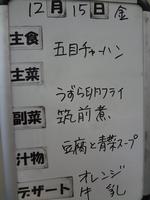 12月15日金
主食
五目チャーハン
主菜
うずら卵フライ
副菜
筑前煮
汁物
豆腐と青菜スープ
デザート
オレンジ
牛乳